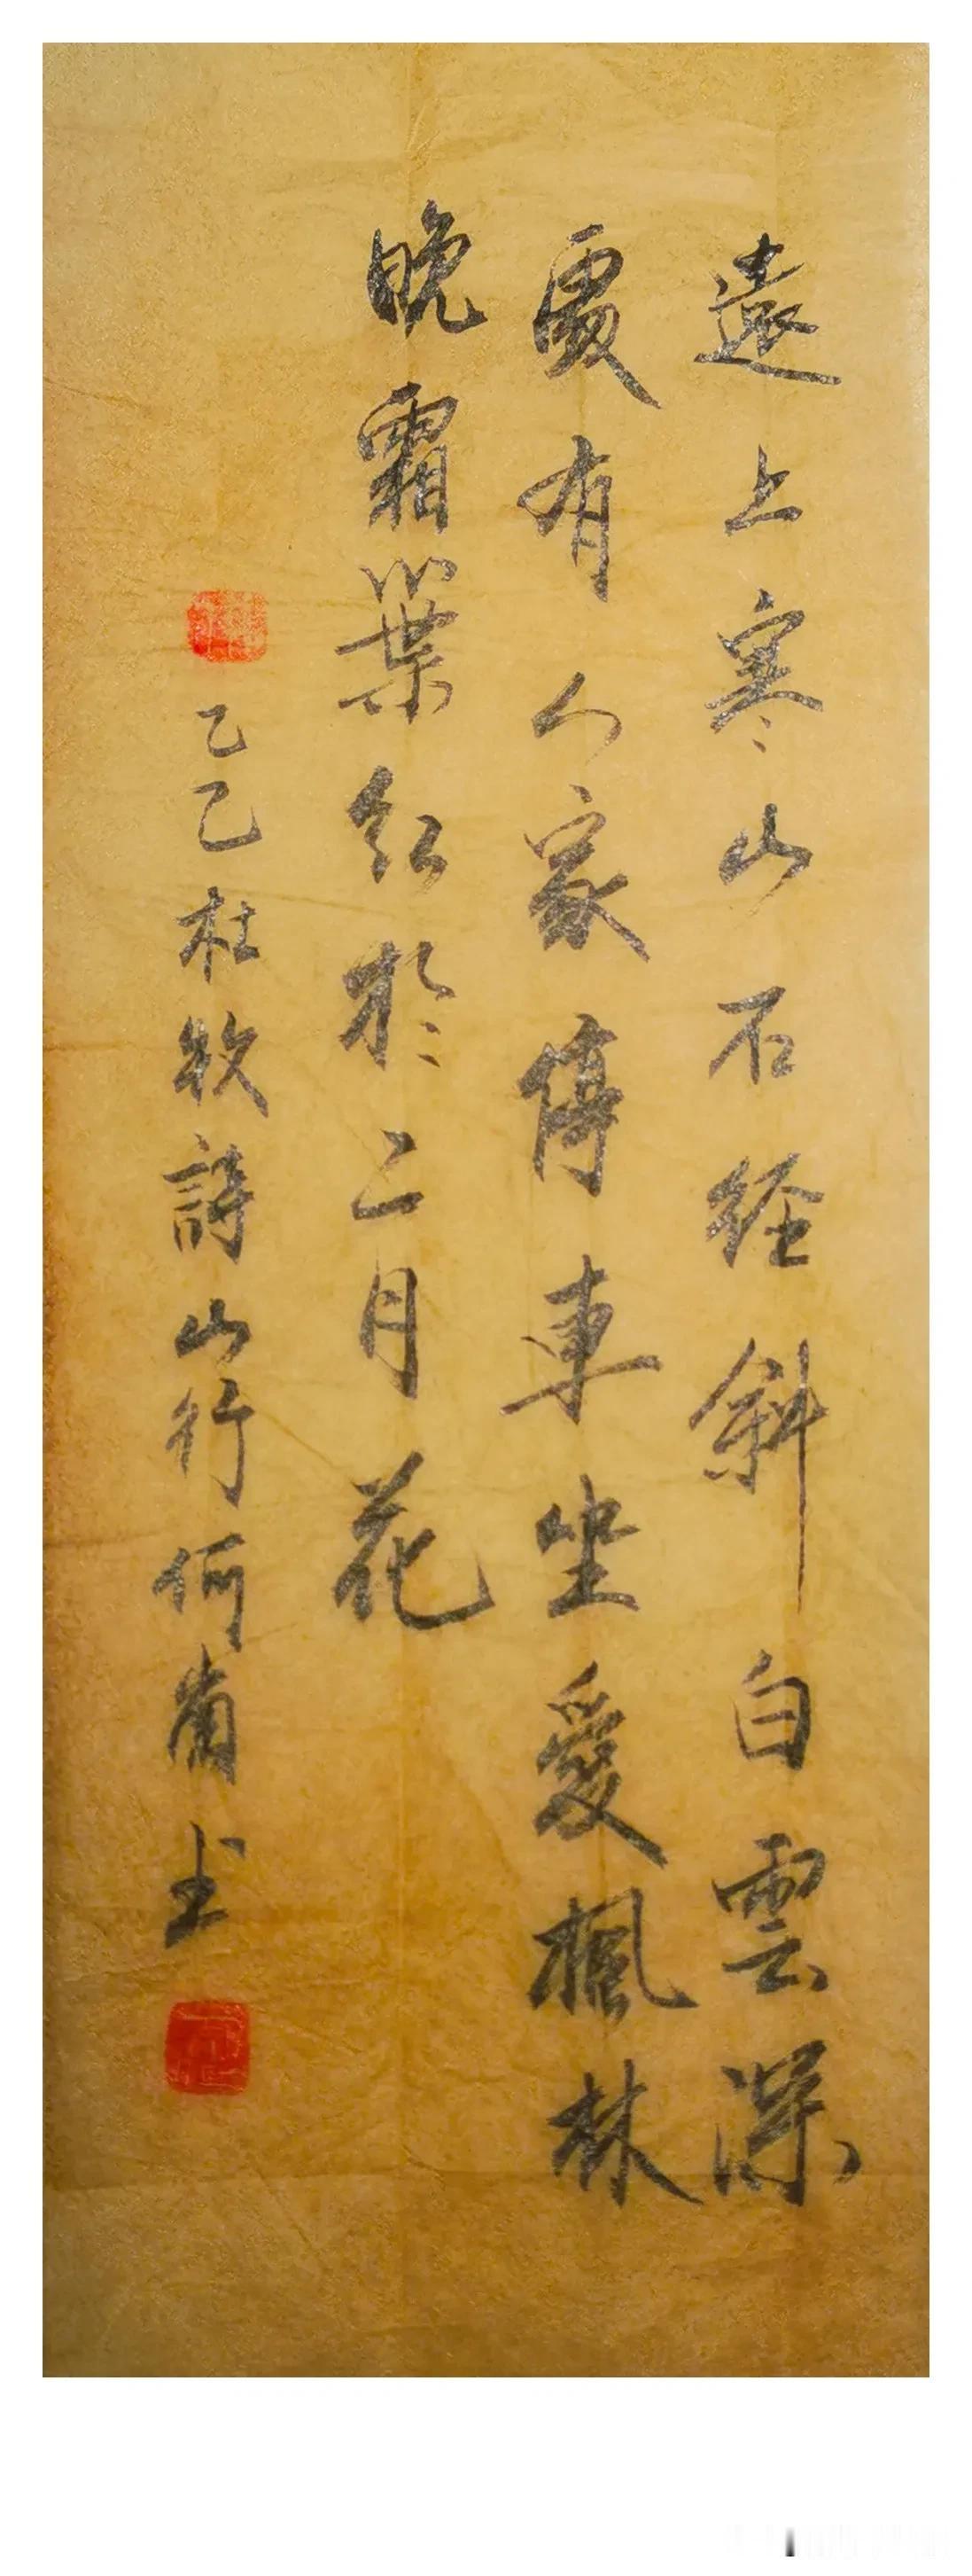 遠上寒山石经斜白雲深
處有人家停車坐愛楓林
晚霜葉紅於二月花
乙巳杜牧詩山行何